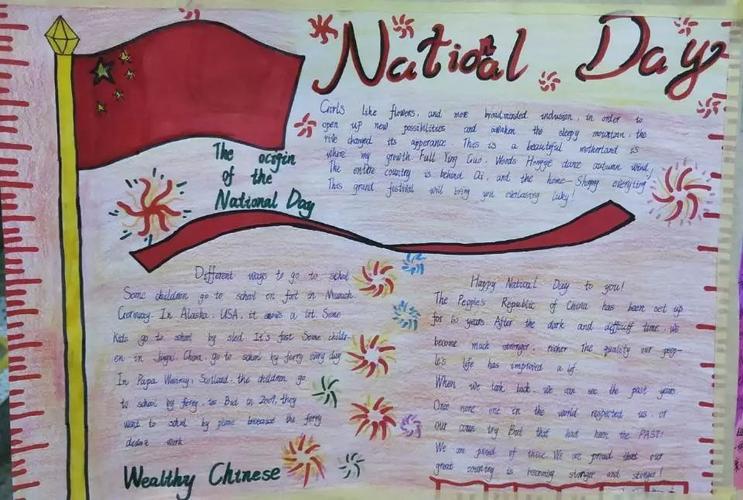 National Day
Girls like flowers, and more broadminded inclusion, in order to
open up new possibilities and awaken the sleepy mountain, the
changed its apperance This is a beautiful motherland is
where my growth Full Ying Guo. Words dance autumn wind,
The entire country is behind and the home everything
This grand festival will bring you everlasting luky!
The origin
of the
National Day
Different ways to go to school
Some children go to school on foot in
In Alaska, USA, it a lot Some
kids go to school by sled It's fast Some childr-
en in China go to school by ferry every day
In Papa the children go
to school by ferry But in 2009, they
want to school by plane because the ferry
work
Wealthy Chinese
Happy National Day to you!
The People's Republic of China has been set up
for 60 years After the dark and time, we
become much stronger, richer The quality our peop-
le's life has improved a lot
When we look back, we can see the past years
Once one in the world respected us or
our But that had been the PAST!
We are proud of We are proud that our
great country is becoming stronger and stronger!